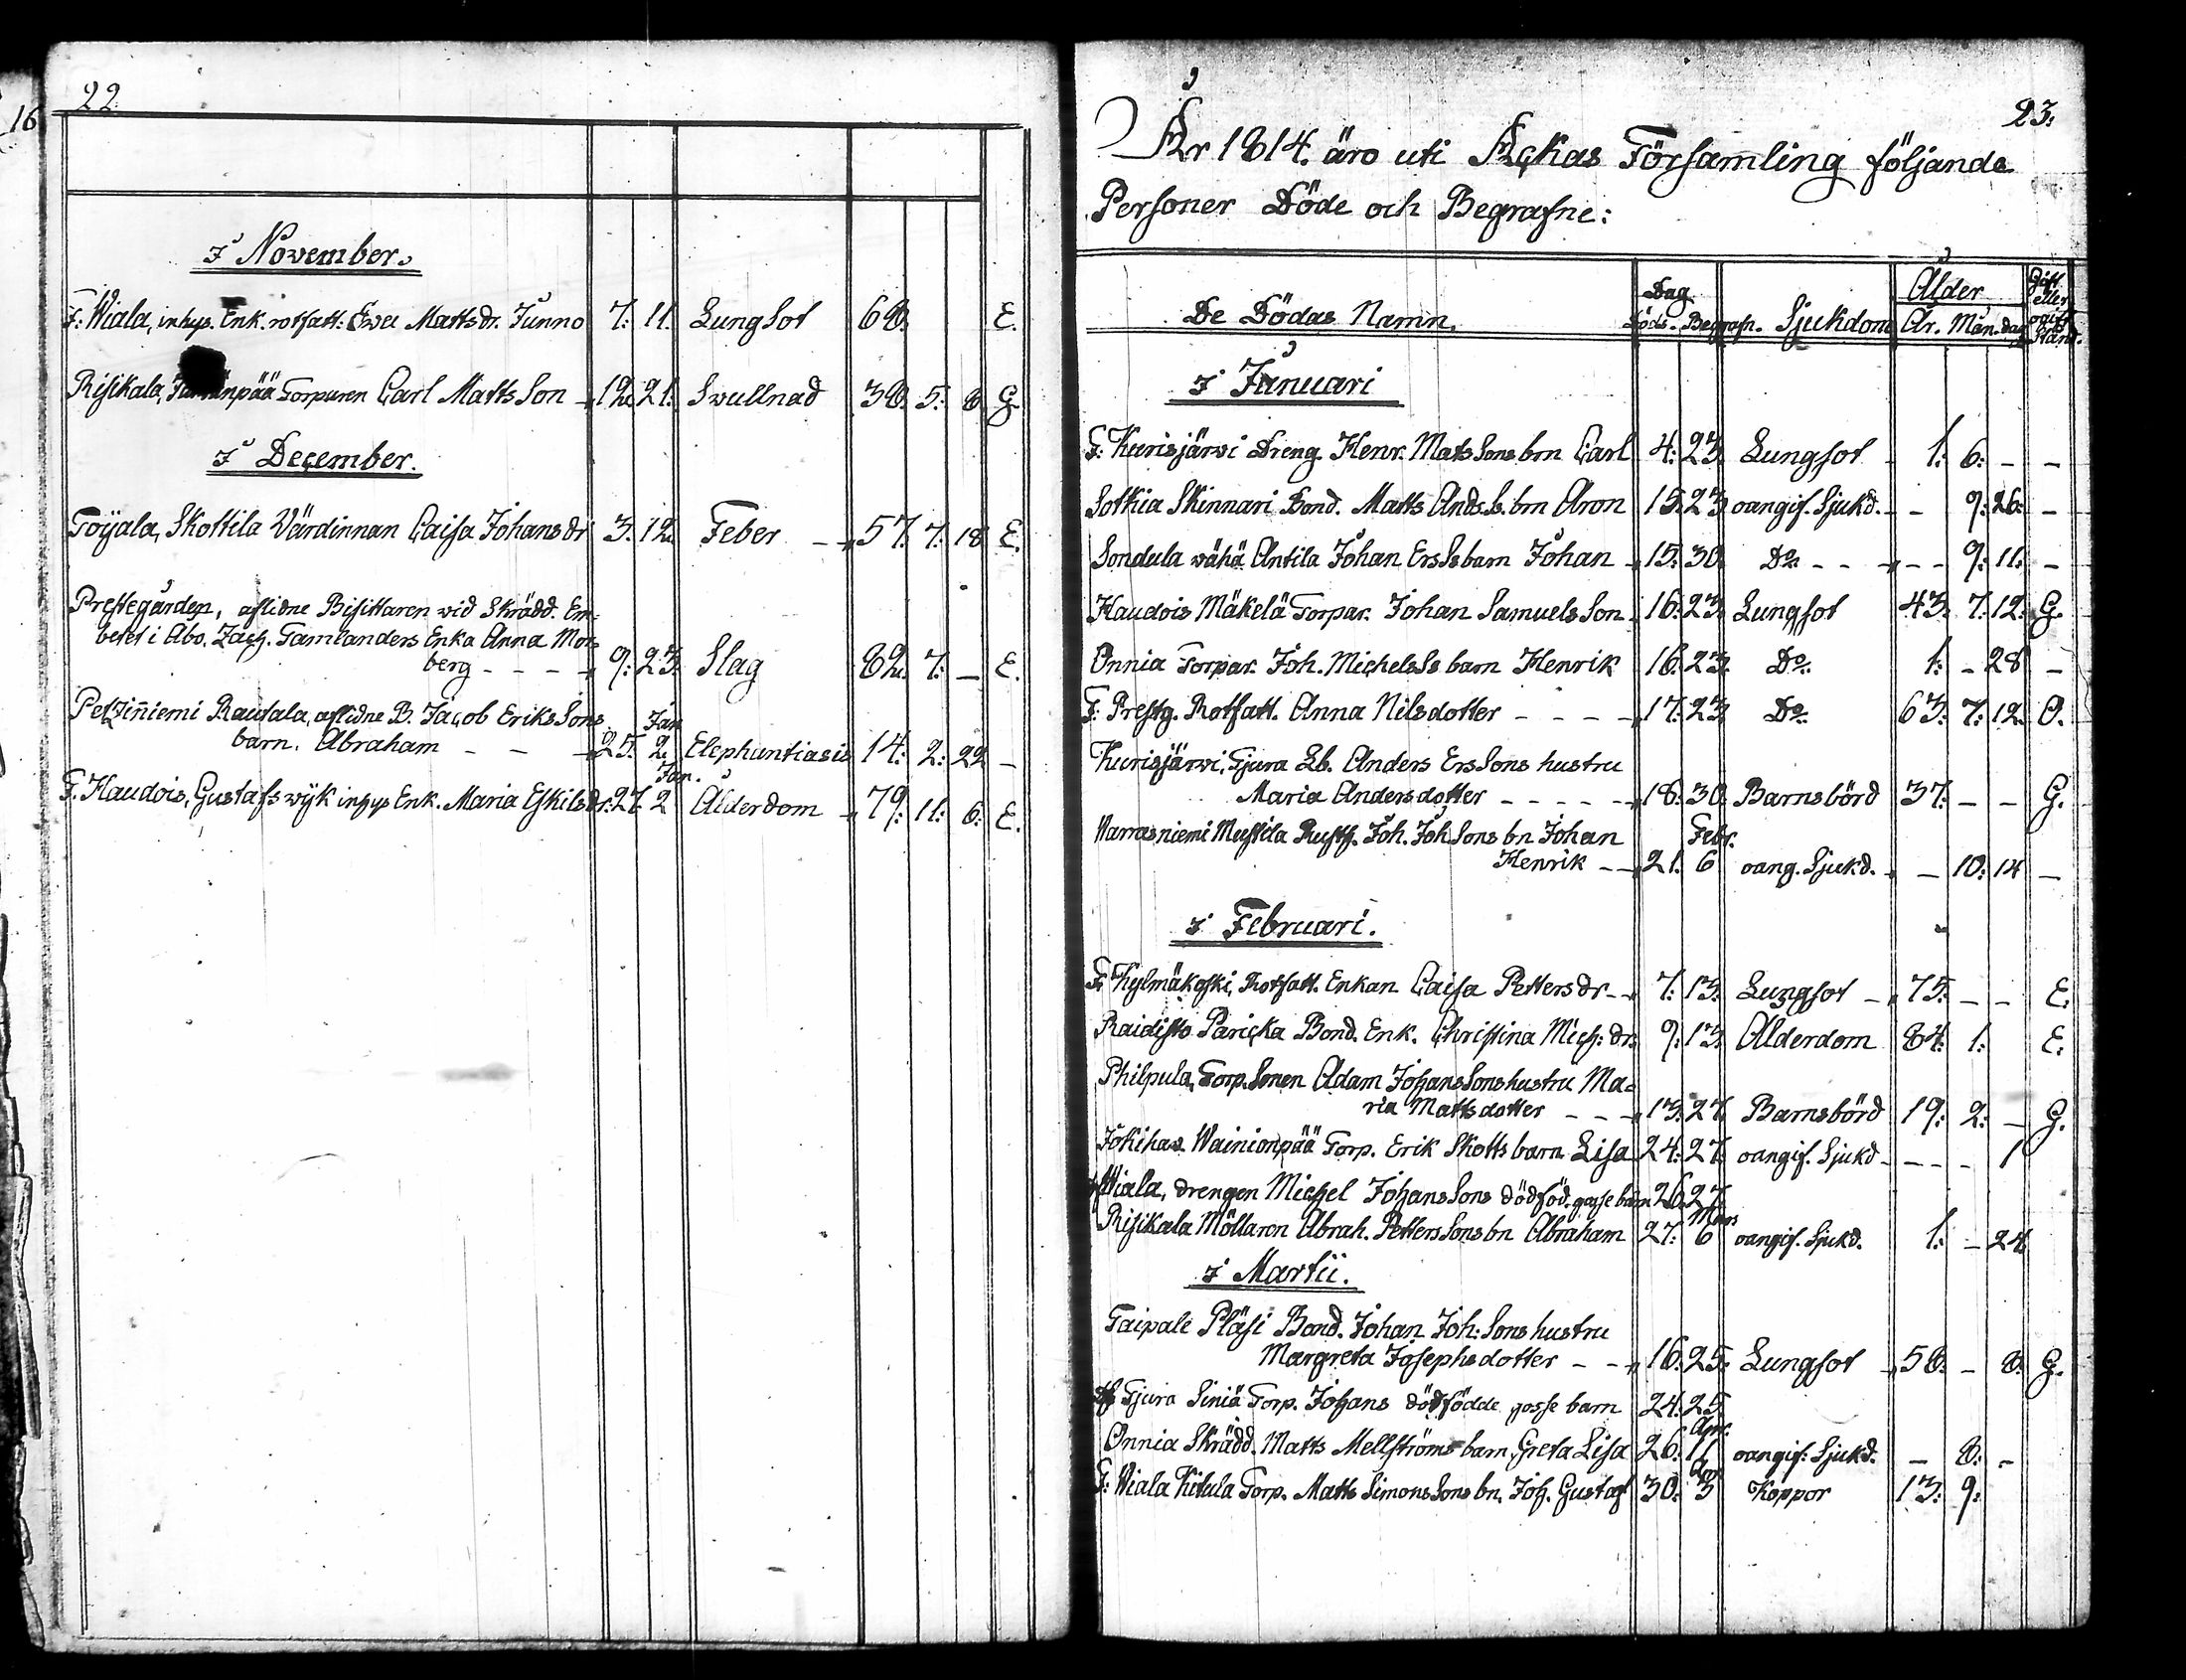 16
22
I November.
F: Wiala, inhys. Enk. rotfatt: Ewa Matts dr. Junno 7: 11. Lungsot 68. E.
Risikala, Torparen Carl Matts Son 12. 21. Svullnad 38. 5. 8 G.
I December.
Toijala, Skottila Värdinnan Caisa Johans dr 3. 12. Feber 57. 7. 18 E.
Prestegården, aflidne Bisittaren wid Skrädd. Em-
betet i Åbo. Zach. Tamlanders Enka Anna Mor-
berg - - - 9: 23. Slag 82. 7. — E.
Petziniemi Rautala, aflidne B. Jacob Eriks Sons Jan
barn. Abraham - - 25. 2. Elephantiasis 14: 2: 22 -
Jan.
F. Haudois, Gustafs wijk inhys Enk. Maria Eskils Dr. 27. 2 Ålderdom 79: 11: 6: E.
23.
År 1814. äro uti Ackas Församling följande
Personer Döde och Begrafne:
De Dödas Namn. Dag. Döds- Begrafn. Sjukdom Ålder År. Mån. dag Gift eller ogift Stånd.
I Januari
F: Kurisjärvi Dreng. Henr. Mats Sons brn Carl 4. 23. Lungsot - 1: 6: - -
Sotkia Skinnari Bond. Matts Ands. S. brn Aron 15. 23 oangif. Sjukd. - - 9: 26: -
Sondula vähä Antila Johan Ers Ss barn Johan 15. 30. Do - - - - 9: 11: -
Haudois Mäkelä Torpar. Johan Samuels Son 16. 23. Lungsot 43. 7. 12. G.
Onnia Torpar. Joh. Michels Ss barn Henrik 16. 23. Do. 1: - 28 -
F: Prestg. Rotfatt. Anna Nilsdotter - - - - 17. 23. Do. 63. 7: 12. O.
Kurisjärvi, Tjura Lb. Anders Ers Sons hustru
Maria Andersdotter - - - - - 18. 30. Barnsbörd 37. - - G.
Warrasniemi Mustila Rustf. Joh. Joh. Sons bn Johan Febr.
Henrik - - 21. 6 oang. Sjukd. - 10: 14 -
I Februari.
F: Kylmäkoski, Rotfatt. Enkan Caisa Petters dr - 7: 13. Lungsot - 75. - - E.
Raidisto Paricka Bond. Enk. Christina Mich: dr. 9: 13. Ålderdom 84. 1: E.
Philpula, Torp. Sonen Adam Johans Sons hustru Ma-
ria Mattsdotter - - - 13. 27. Barnsbörd 19. 2: - G.
Jokihav. Wainionpää Torp. Erik Skotts barn Lisa 24. 27. oangif. Sjukd - - - - 1
Wiala, drengen Michel Johans Sons dödföd. gosse barn 26. 27.
Mars
Risikala Möllaren Abrah. Petters Sons bn Abraham 27. 6 oangif. Sjukd. 1: - 24
I Martii.
Taipale Pläsi Bond. Johan Joh: Sons hustru
Margreta Josephsdotter - - 16. 25. Lungsot 58. - 8. G.
Tjura Siniä Torp. Johans dödfödde gosse barn 24. 25
Apr.
Onnia Skrädd. Matts Mellströms barn, Greta Lisa 26. 11 oangif: Sjukd. - 8: -
Apr
F: Wiala Kitula Torp. Matts Simons Sons bn. Joh. Gustaf 30. 3 Koppor 13: 9: